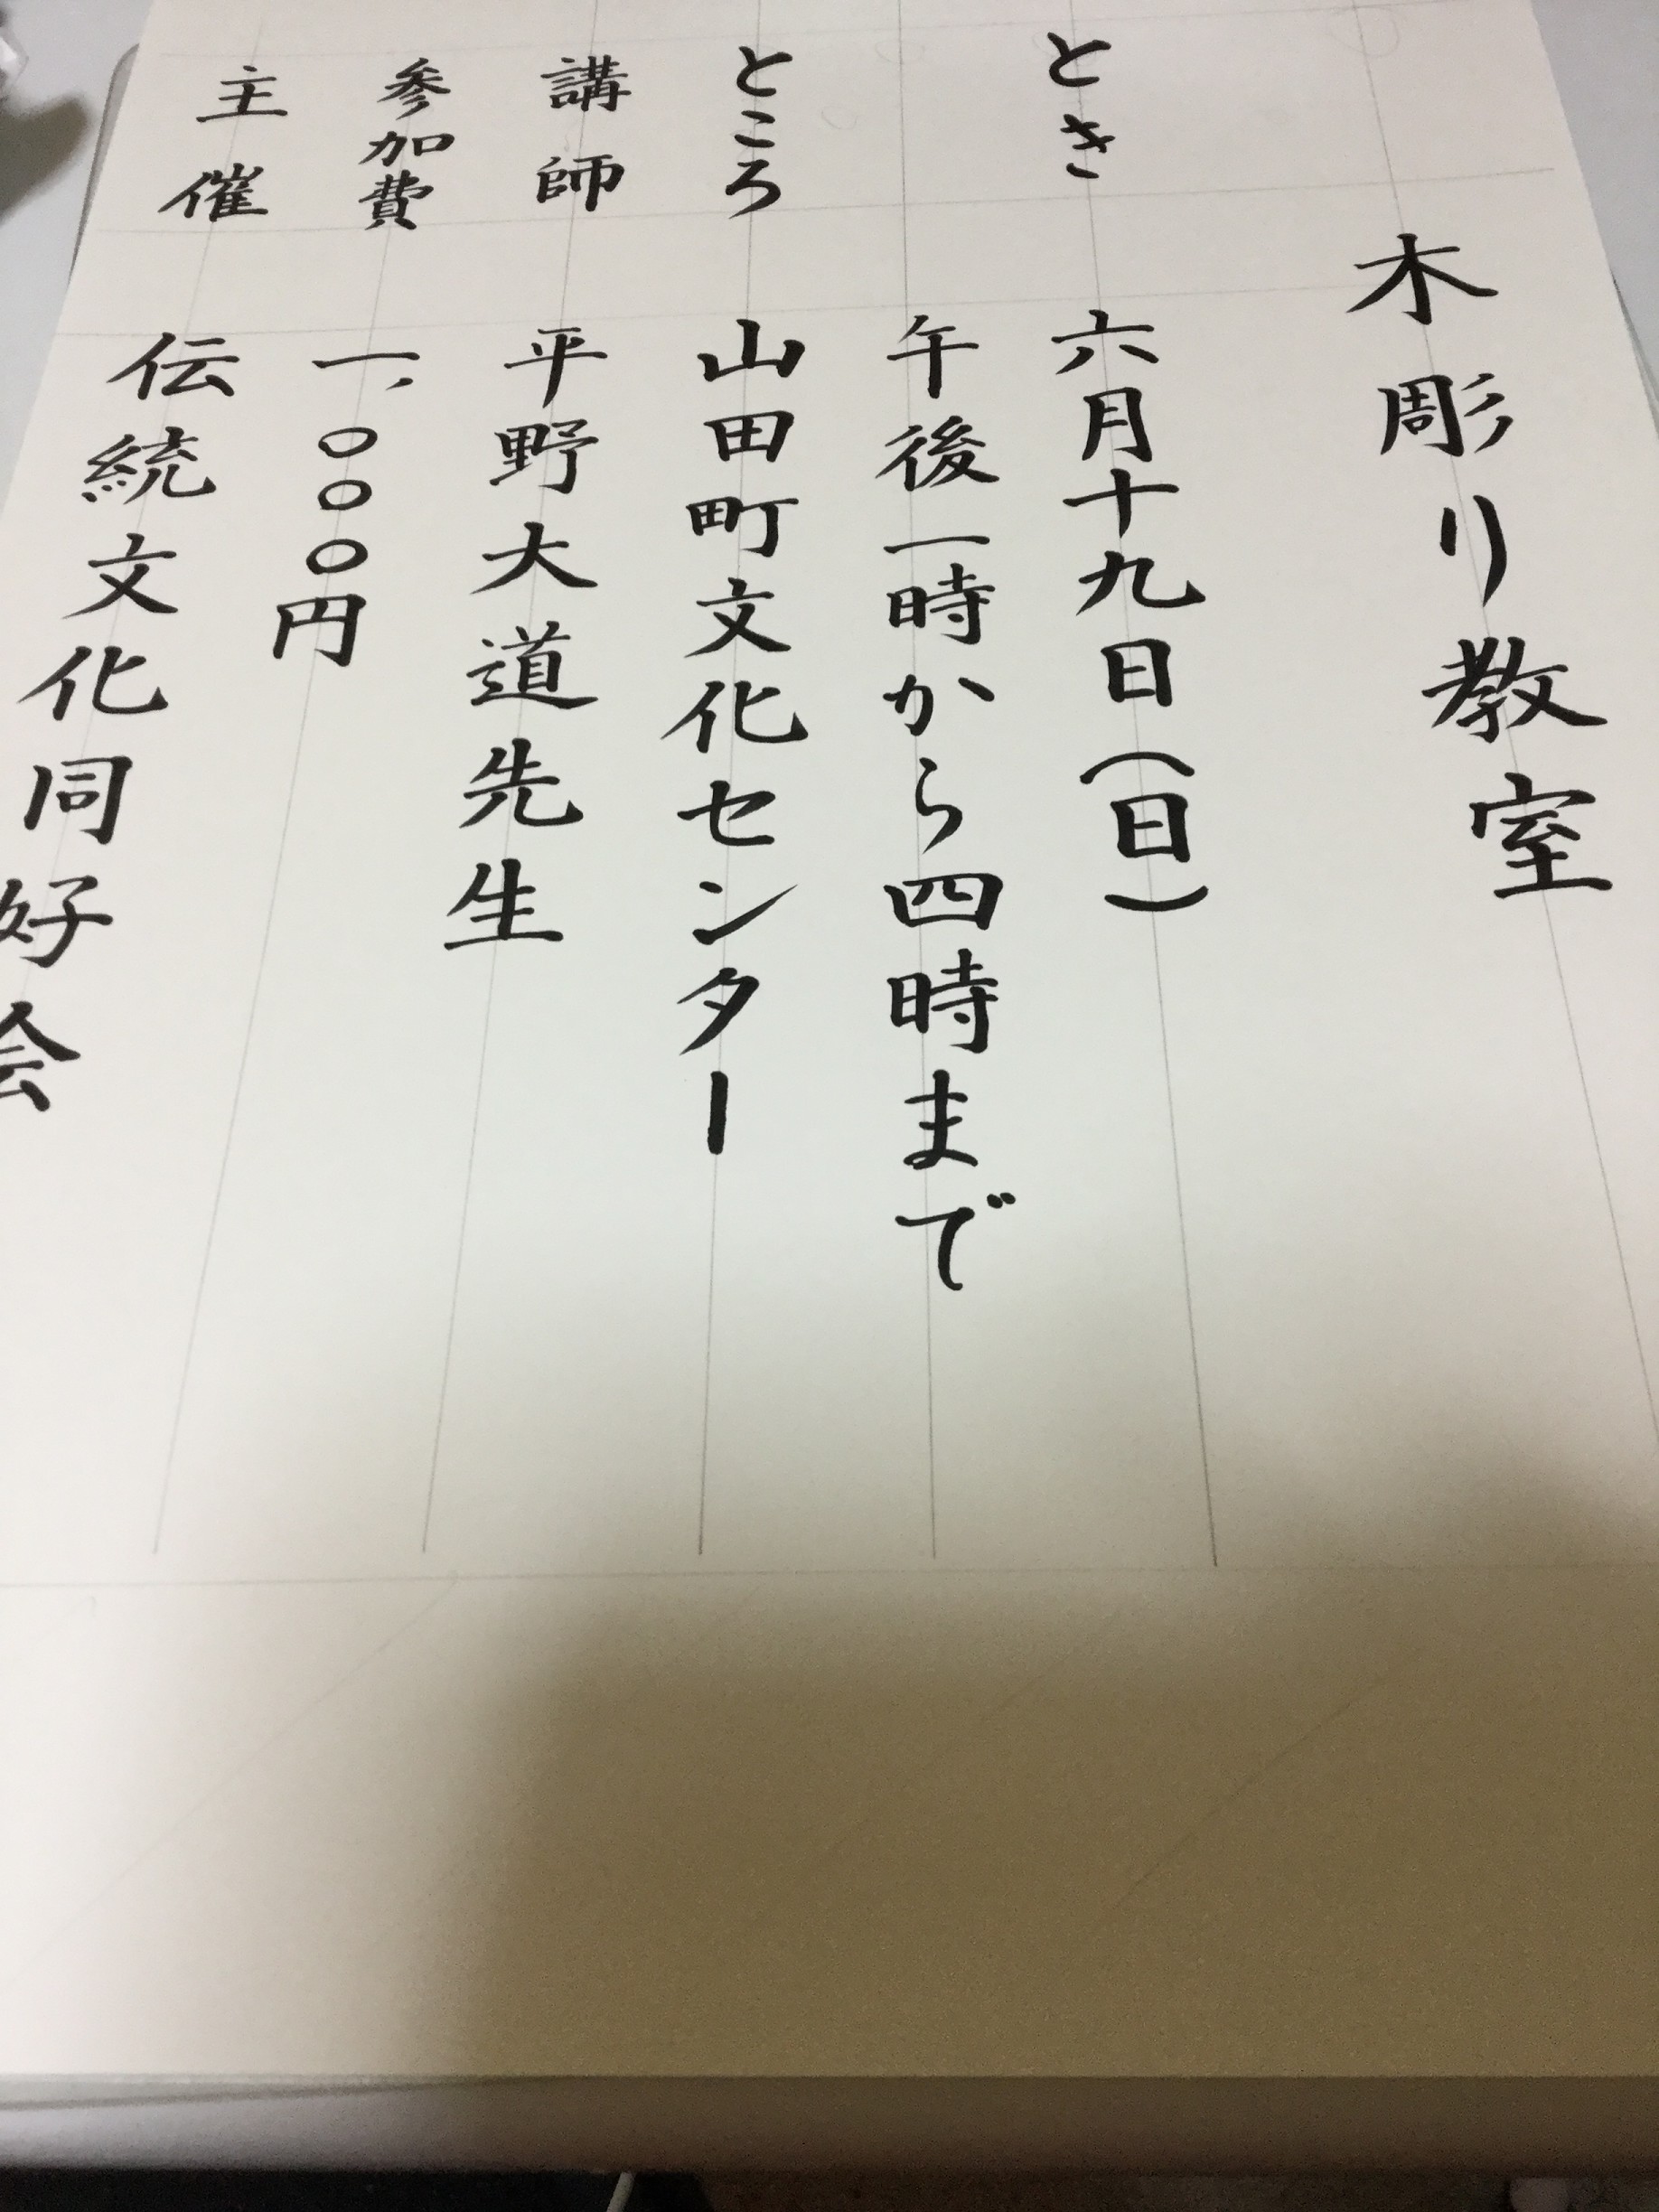 木彫り教室
とき 六月十九日(日)
午後一時から四時まで
ところ 山田町文化センター
講師 平野大道先生
参加費 一、〇〇〇円
主催 伝統文化同好会